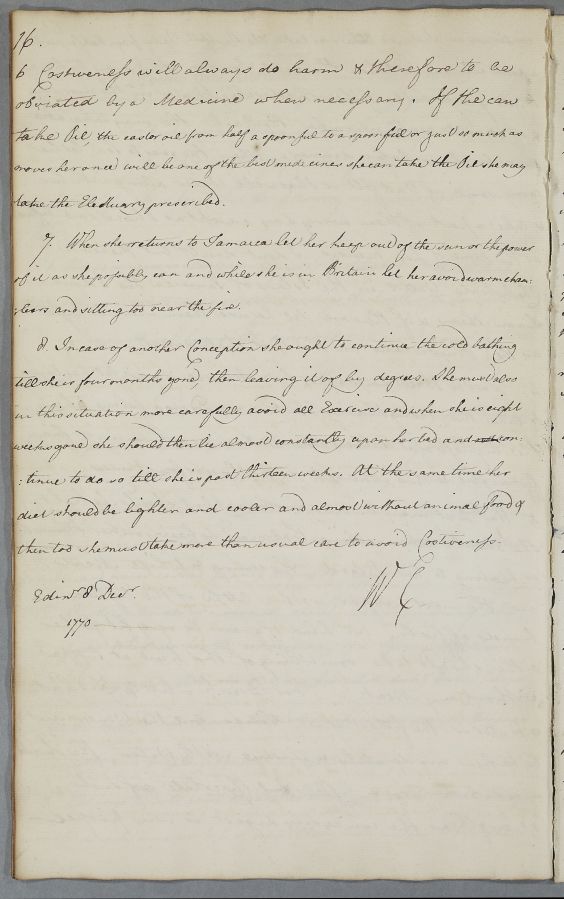 16.
6 Costiveness will always do harm & therefore to be
obviated by a Medicine when necessary. If she can
take Oil, the castor oil from half a spoonful to a spoonful or just so much as
moves her once will be one of the best medicines she can take the Oil she may
take the Electuary prescribed.
7. When she returns to Jamaica let her keep out of the sun or the power
of it as she possibly can and while she is in Britain let her avoid warm cham:
:bers and sitting too near the fire.
8. In case of another Conception she ought to continue the cold bathing
till she is four months gone, then leaving it of by degrees. She must also
in this situation more carefully avoid all Exercise and when she is eight
weeks gone she should then lie almost constantly upon her bed and con:
:tinue to do so till she is past thirteen weeks. At the same time her
diet should be lighter and cooler and almost without animal food &
then too she must take more than usual care to avoid Costiveness.
Edinr. 8 Decr.
1770
W C